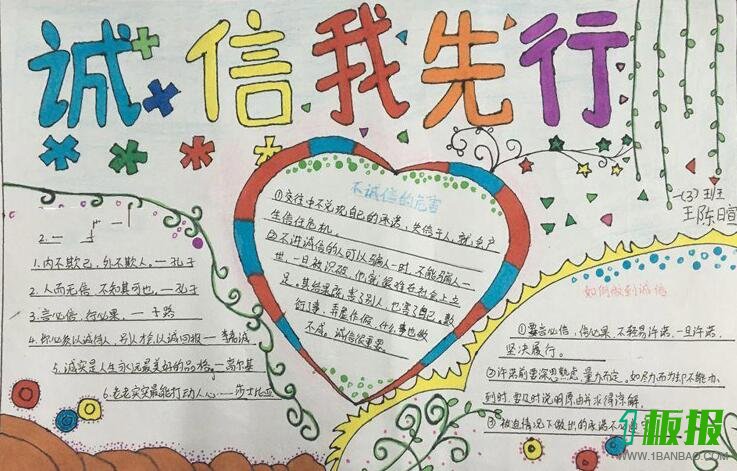 诚信我先行
一(3)班
王陈日宣
2.
1.内不欺己,外不欺人。—孔子
2.人而无信,不知其可也。—孔子
3.言必信,行必果。—子路
4.你必须以诚待人,别人才会以诚回报—李嘉诚
5.诚实是人生永远最美好的品格。—高尔基
6.老老实实最能打动人心。—莎士比亚
不诚信的危害
①交往中不兑现自己的承诺,失信于人,就会产
生信任危机。
②不讲诚信的人可以骗人一时,不能骗人一
世,一旦被识破,他就很难在社会上立
足。其结果既害了别人,也害了自己。敷
衍事,弄虚作假,什么事也做
不成。诚信很重要。
如何做到诚信
①要言必信,行必果,不轻易许诺,一旦许诺,
坚决履行。
②许诺前要深思熟虑,量力而定。如尽力而为却不能办
到时,要及时说明原由并求得谅解。
③被迫情况下做出的承诺不
1板报
WWW.1BANBAO.COM